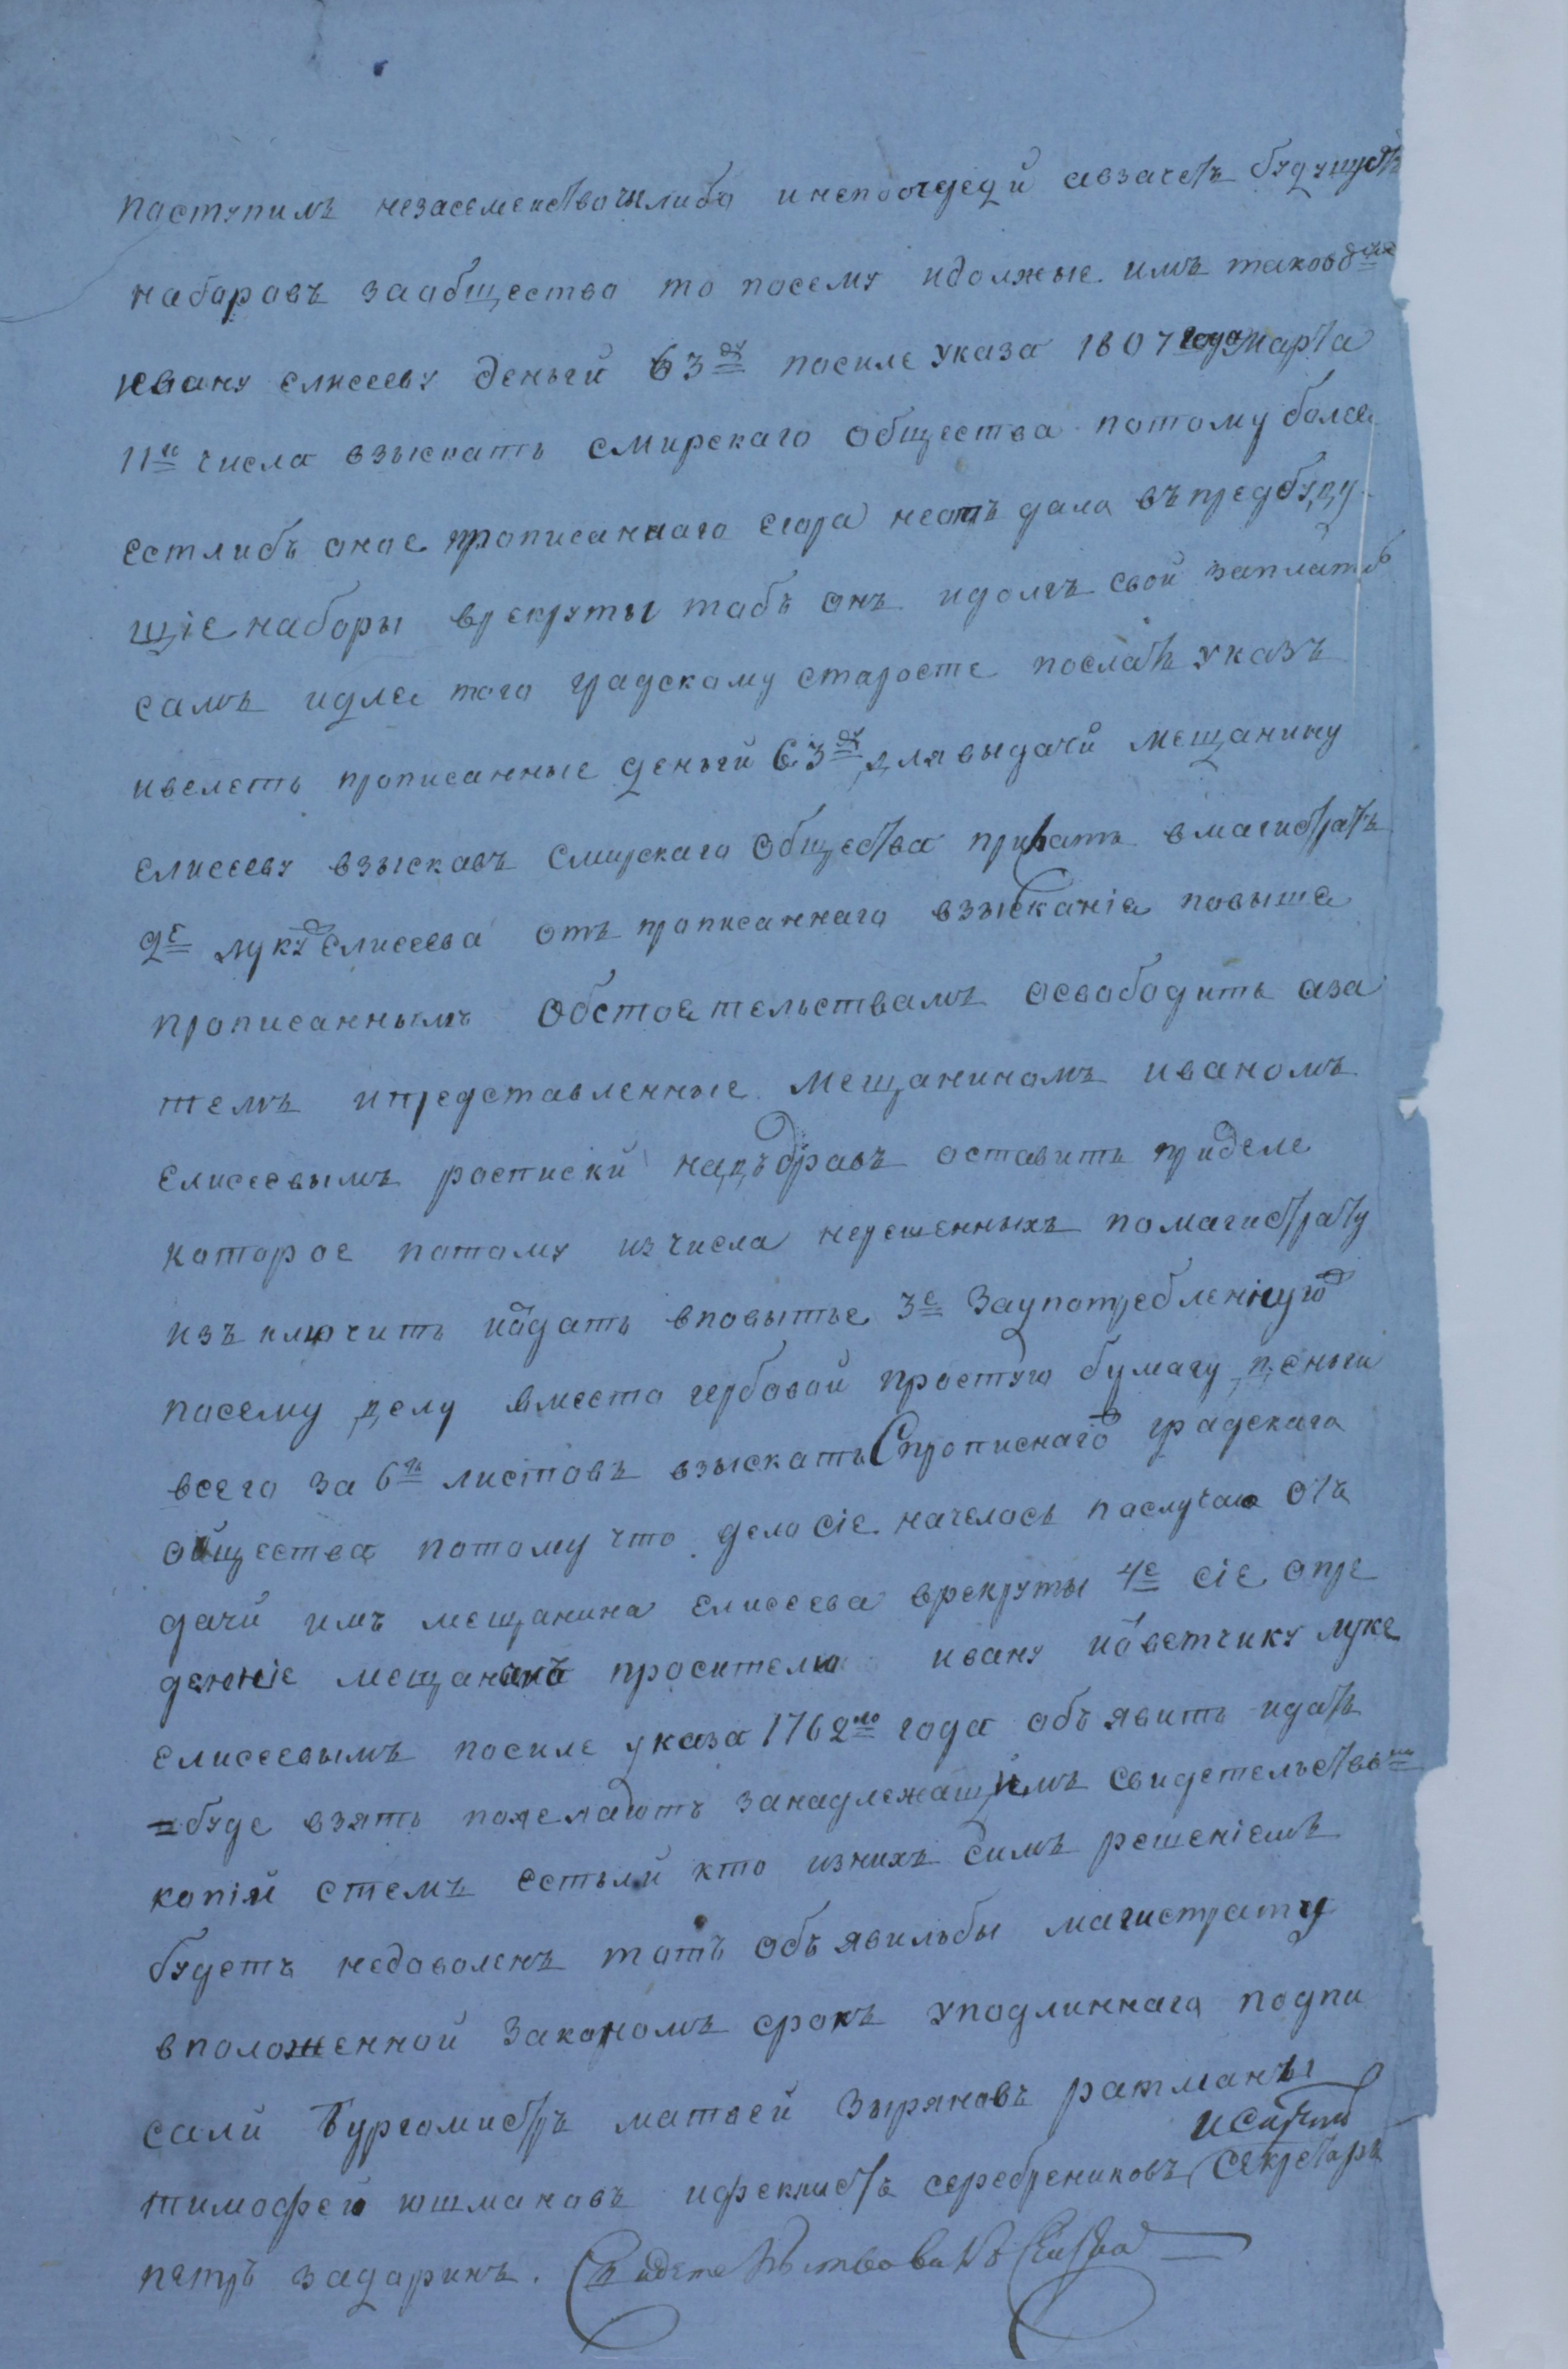 поступилъ незасемейство чилибо инепоочереди авзачетъ будущихъ
наборовъ заобщество то посему идолжные имъ таковые
ивану елисееву деньги 63 ру посиле указа 1807 года марта
11го числа взыскать смирскаго общества потому более
естлибъ оное прописаннаго егора неотъ дало въ предбуду
щіе наборы врекруты тобъ онъ идолгъ свой заплатилъ
самъ идля того градскому старосте послать указъ
ивелеть прописанные деньги 63 ру для выдачи мещанину
елисееву взыскавъ смирскаго общества прислать вмагистратъ
2е луку елисеева отъ прописаннаго взысканія повыше
прописаннымъ обстоятельствамъ освободить аза
темъ ипредставленные мещаниномъ иваномъ
елисеевымъ росписки надъ дравъ оставить приделе
которое потому изчисла нерешенныхъ помагистрату
изъ ключить иодать вповытье 3е Заупотребленную
посему делу вместо гербовой простую бумагу деньги
всего за 6ть листовъ взыскать Спрописнаго градскаго
общества потому что дело сіе началось послучаю отъ
дачи имъ мещанина елисеева врекруты 4е сіе опре
деленіе мещанамъ просителю ивану иответчику луке
елисеевымъ посиле указа 1762го года объ явить идать
буде взять пожелаютъ занадлежащимъ свидетельствомъ
копіи стемъ естьли кто изнихъ симъ решеніемъ
будетъ недоволенъ тотъ объ явилъбы магистрату
вположенной закономъ срокъ уподлиннаго подпи
сали Бургомистръ матвей Зыряновъ ратманы
тимофей юшмановъ ифеклистъ серебрениковъ секретарь
петръ задоринъ.